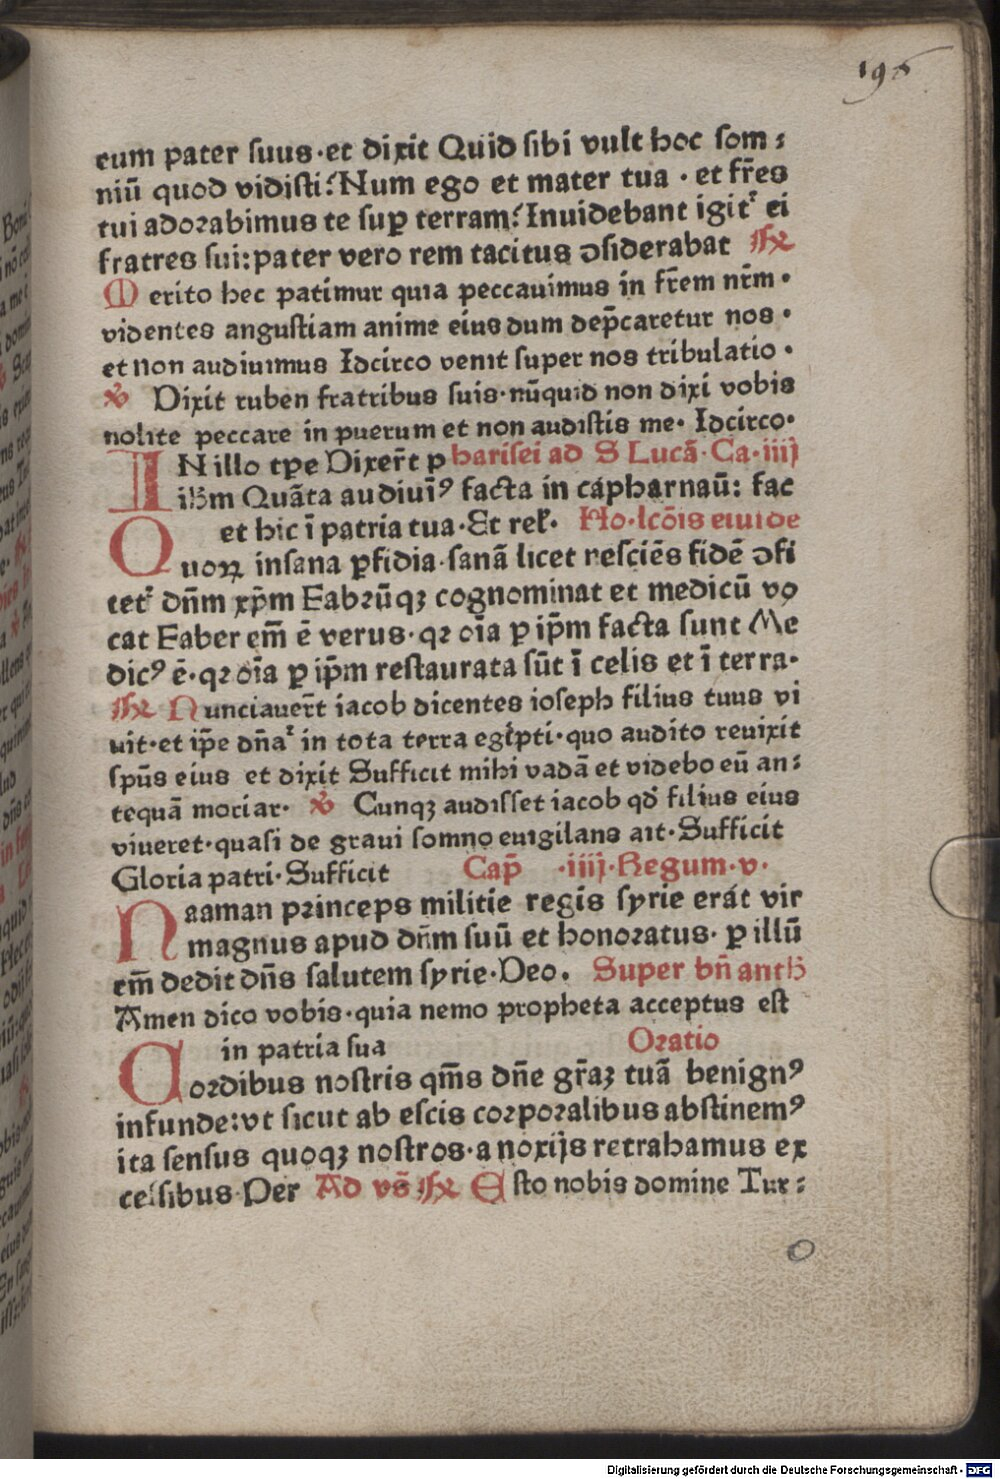 196
eum pater suus·et dixit Quid sibi vult hoc som⸗
niū quod vidisti?Num ego et mater tua · et fr̄es
tui adorabimus te sup terram?Inuidebant igit᷑ ei
fratres sui:pater vero rem tacitus ↄsiderabat ℟
Merito hec patimur quia peccauimus in fr̄em nr̄m·
videntes angustiam anime eius dum dep̄caretur nos·
et non audiuimus Idcirco venit super nos tribulatio·
℣ Dixit ruben fratribus suis·nūquid non dixi vobis
nolite peccare in puerum et non audistis me· Idcirco·
IN illo tꝑe Dixer̄t pharisei ad S Lucā·Ca·iiij
ihm Quāta audiuiꝰ facta in capharnaū: fac
et hic ī patria tua·Et rel· Ho·lcōis eiusde
Quoꝝ insana ꝑfidia·sanā licet nesciēs fidē ↄfi
tet᷑ dn̄m xp̄m Fabrūqꝫ cognominat et medicū vo
cat Faber em̄ ē verus·qꝛ oīa ꝑ ip̄m facta sunt Me
dicꝰ ē·qꝛ oīa ꝑ ip̄m restaurata sūt ī celis et ī terra·
℟ Nunciauer̄t iacob dicentes ioseph filius tuus vi
uit·et ip̄e dn̄a᷑ in tota terra egipti·quo audito reuixit
spūs eius et dixit Sufficit mihi vadā et videbo eū an⸗
tequā moriar· ℣ Cunqꝫ audisset iacob qd̄ filius eius
viueret·quasi de graui somno euigilans ait·Sufficit
Gloria patri·Sufficit Cap̄ ·iiij·Regum·v·
Naaman princeps militie regis syrie erat vir
magnus apud dn̄m suū et honoratus· ꝑ illū
em̄ dedit dn̄s salutem syrie·Deo. Super bn̄ anth
Amen dico vobis·quia nemo propheta acceptus est
in patria sua Oratio
Cordibus nostris qm̄s dn̄e gr̄aꝫ tuā benignꝰ
infunde:vt sicut ab escis corporalibus abstinemꝰ
ita sensus quoqꝫ nostros·a noxijs retrahamus ex
cessibus·Per Ad vs̄ ℟ Esto nobis domine Tur⸗
Digitalisierung gefördert durch die Deutsche Forschungsgemeinschaft · DFG